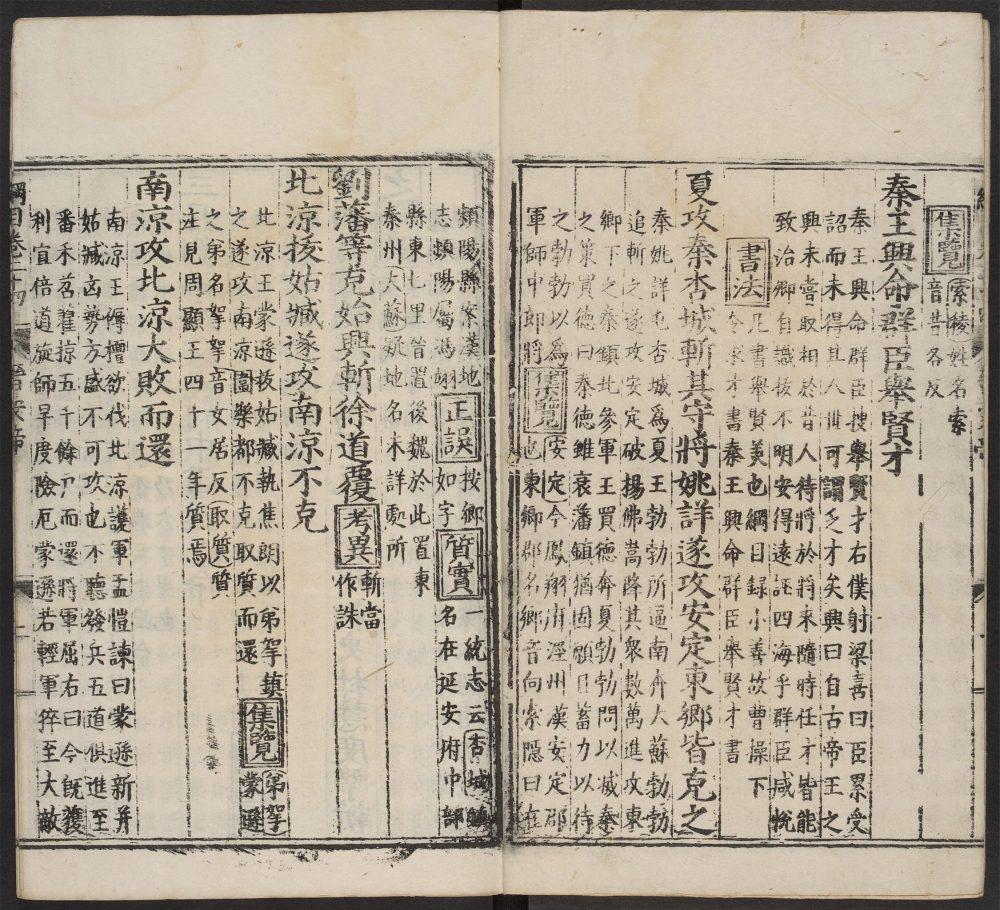 秦王興命群臣舉賢才
集覽 索稜姓名索
音昔名友
秦王興命群臣搜舉賢才右僕射梁喜曰臣累受
詔而未得其人世可謂乏才矣興曰自古帝王之
興未嘗取相於昔人待將於將來隨時任才皆能
致治卿自識拔不明安得遠誣四海乎群臣咸悅
書法 凡書舉賢美也綱目録小善故曹操下
令求才書秦王興命群臣舉賢才書
夏攻秦杏城斬其守將姚詳遂攻安定東鄉皆克之
秦姚詳屯杏城爲夏王勃勃所逼南奔大蘇勃勃
追斬之遂攻安定破楊佛嵩降其衆數萬進攻東
鄉下之秦鎮北參軍王買德奔夏勃勃問以滅秦
之策買德曰秦德雖衰藩鎮猶固願且蓄力以待
之勃勃以爲 集覽 安定今鳳翔府涇州漢安定郡
軍師中郎將 也東鄉郡名鄉音向索隱曰在
頻陽縣案漢地 正誤 按鄉 質實 一統志云杏城鎮
志頻陽屬馮翊 如字 名在延安府中部
縣東七里晉置後魏於此置東
秦州大蘇疑地名未詳處所
劉藩等克始興斬徐道覆 考異 斬當
作誅
北涼拔姑臧遂攻南涼不克
北涼王蒙遜拔姑臧執焦朗以弟挐鎮
之遂攻南涼圍樂都不克取質而還 集覽 弟挐 蒙遜
之弟名挐音女居反取質質
注見周顯王四十一年質焉
南涼攻北涼大敗而還
南涼王傉檀欲伐北涼護軍孟愷諫曰蒙遜新并
姑臧凶勢方盛不可攻也不聽發兵五道俱進至
番禾苕藋掠五千餘戶而還將軍屈右曰今既獲
利宜倍道旋師早度險厄蒙遜若輕軍猝至大敵
綱目卷二十四 晉安帝